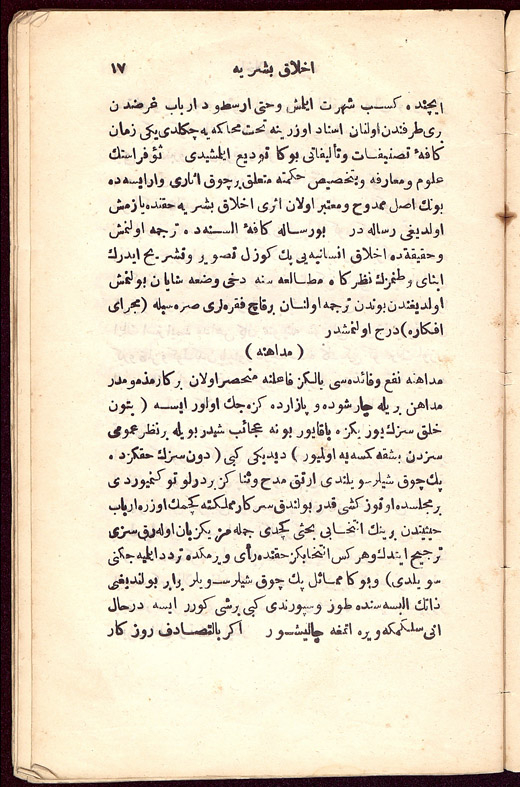 اخلاق بشریه ١٧
ایچنده کسب شهرت ایلمش وحتی ارسطو دارباب غرضدن
ری طرفندن اولنان اسناد اوزرینه تحت محاکمه یه چکلدیکی زمان
کافهٔ تصنیفات وتألیفاتی بوکا تودیع ایلمشیدی تؤفراستك
علوم ومعارفه وبتخصیص حکمته متعلق برچوق اثاری وارایسه ده
بونك اصل ممدوح ومعتبر اولان اثری اخلاق بشریه حقنده یازمش
اولدیغی رساله در بورساله کافهٔ السنه ده ترجمه اولنمش
وحقیقةده اخلاق انسانیه یی پك کوزل تصویر وتشریح ایدرك
ابنای وطنمزك نظرکاه مطالعه سنه دخی وضعه شایان بولنمش
اولدیغندن بوندن ترجمه اولنان برقاچ فقره لری صره سیله (مجرای
افکاره) درج اولنمشدر
( مداهنه )
مداهنه نفع وفائده سی یالکز فاعلنه منحصر اولان برکار مذمومدر
مداهن بریله چارشوده و پازارده کزه جك اولور ایسه ( بتون
خلق سزك یوریکزه باقایور بو نه عجائب شیدر بویله برنظر عمومی
سزدن بشقه کسه یه اولمیور ) دیدیکی کبی ( دون سزك حقکزده
پك چوق شیلر سویلندی ارتق مدح وثنا کز بردرلو توکنمیوردی
بر مجلسده اوتوز کشی قدر بولندق سرکار مملکته کچمك اوزره ارباب
حیثیتدن برینك انتخابی بحثی کچدی جمله مز یکزبان اوله رق سزی
ترجیح ایتدك وهر کس انتخابکز حقنده رأی ویرمکده تردد ایلمیه جکنی
سویلدی ) وبوکا مماثل پك چوق شیلر سویلر برابر بولندیغی
ذاتك البسه سنده طوز وسپورندی کبی برشی کورر ایسه درحال
انی سلکمکه ویره اتمغه چالیشور اکر بالتصادف روزکار